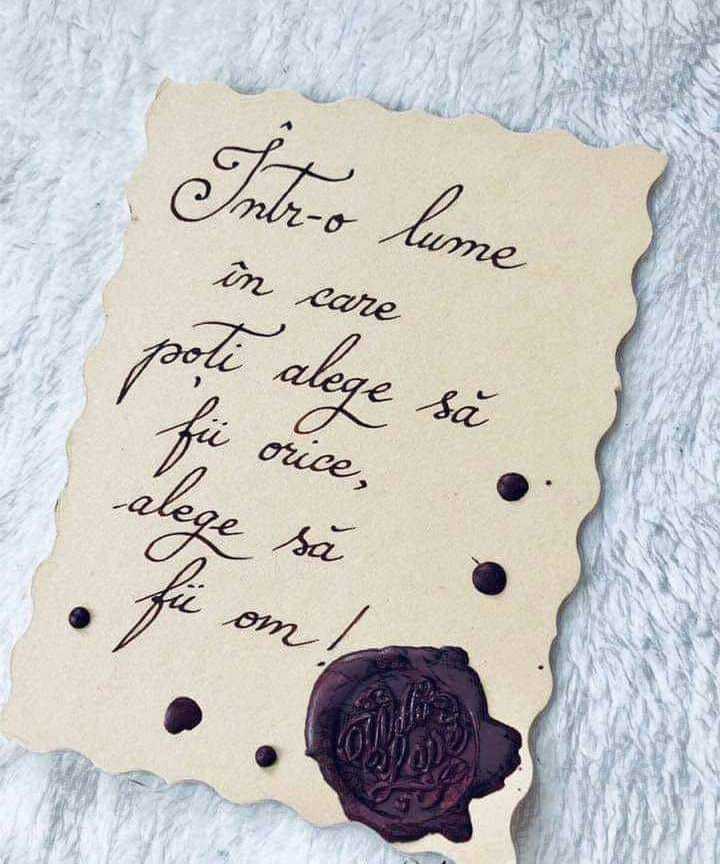 Într-o lume
în care
poți alege să
fii orice,
alege să
fii om!